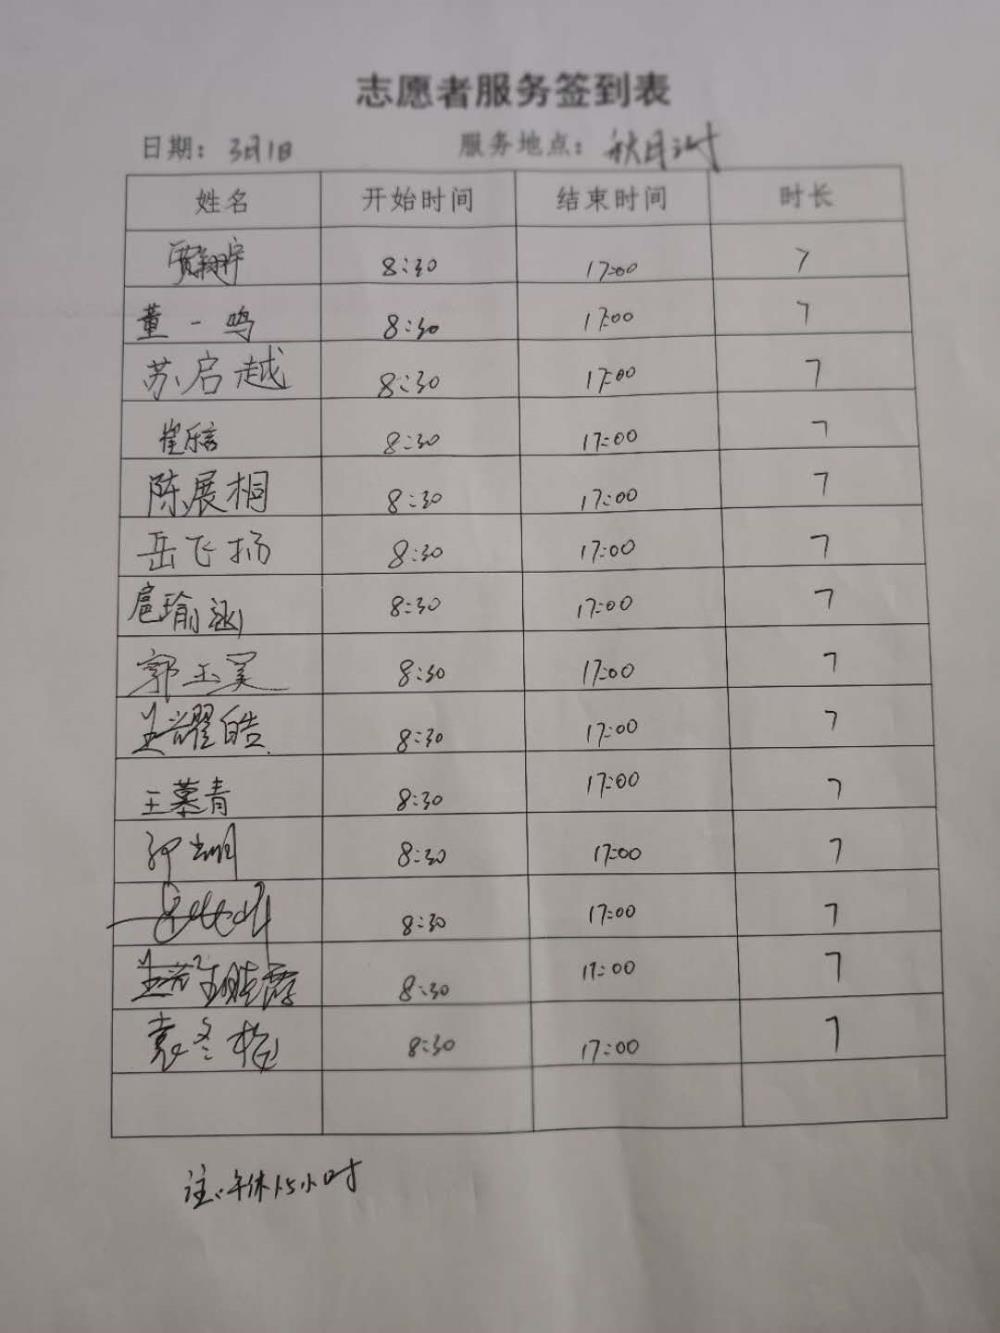 志愿者服务签到表
日期：3月1日 服务地点：秋月
姓名 开始时间 结束时间 时长
贾翔宇 8:30 17:00 7
董一鸣 8:30 17:00 7
苏启越 8:30 17:00 7
崔乐言 8:30 17:00 7
陈展桐 8:30 17:00 7
岳飞扬 8:30 17:00 7
扈瑜涵 8:30 17:00 7
郭玉昊 8:30 17:00 7
兰耀皓 8:30 17:00 7
王慕青 8:30 17:00 7
8:30 17:00 7
8:30 17:00 7
8:30 17:00 7
袁冬梅 8:30 17:00 7
注：午休1.5小时